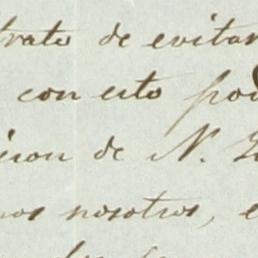 trato de evitar
con esto pod
cion de N.
nos nosotros, e